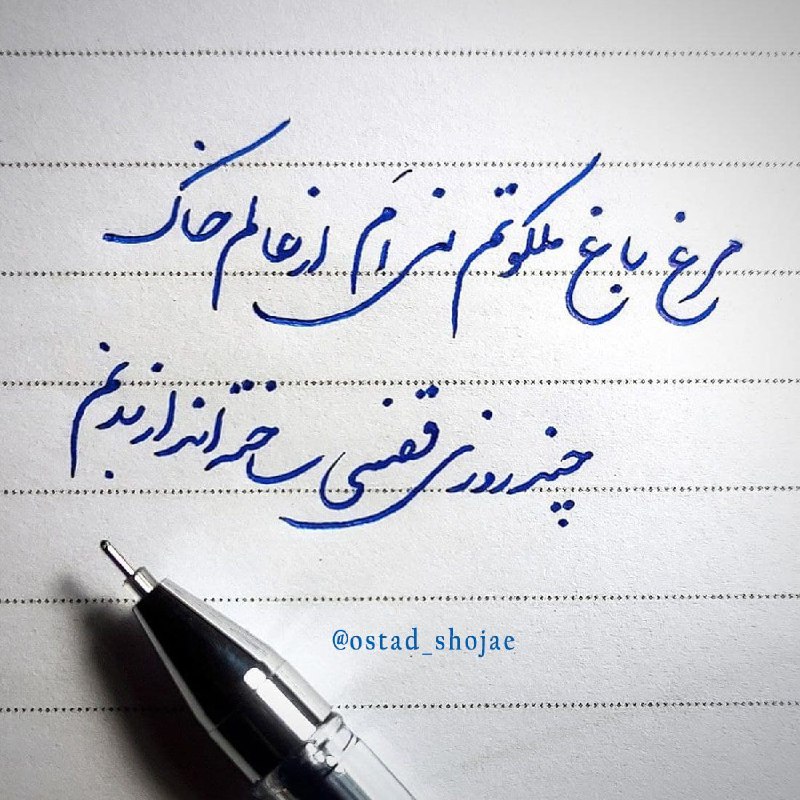 مرغ باغ ملکوتم نی اَم از عالم خاک
چند روزی قفسی ساخته اند از بدنم
@ostad_shojae